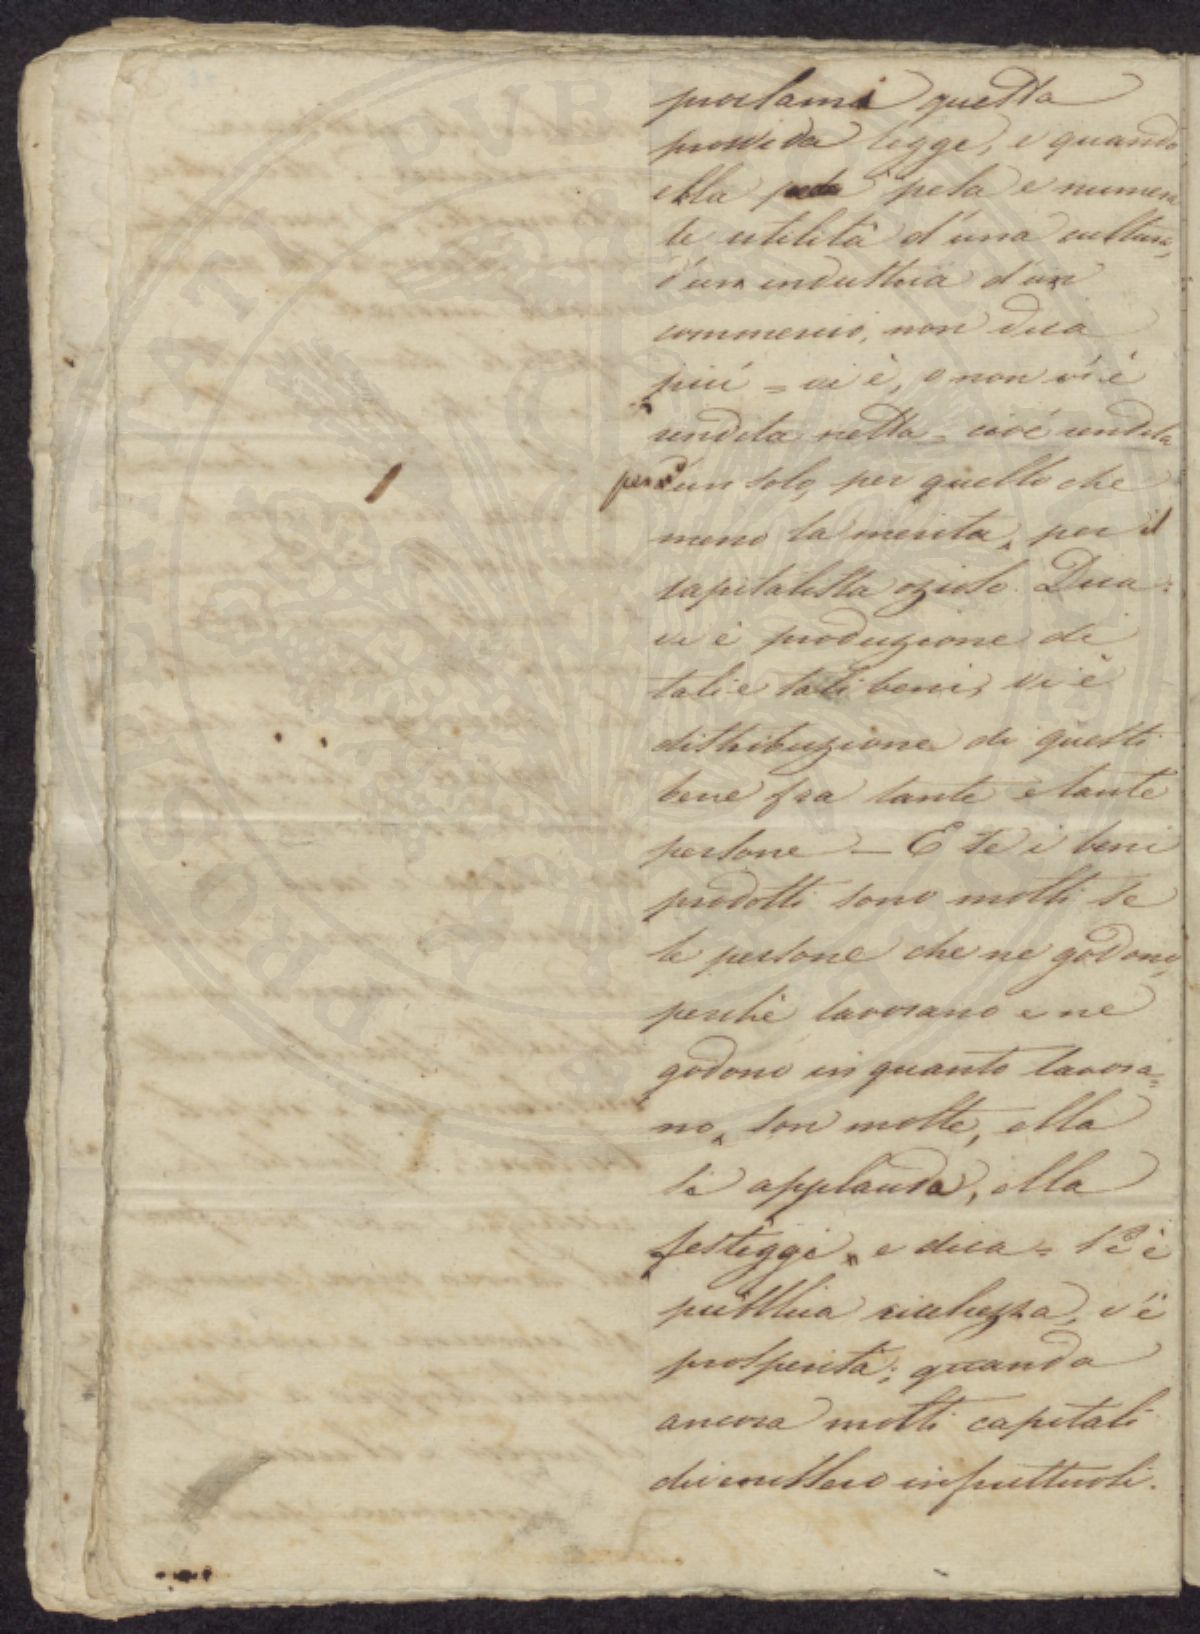 proclami questa
provvida legge, e quando
ella pesa e numera
le utilità d'una cultura,
d'un industria d'un
commercio, non dica
più = vi è, o non vi è
rendita netta = cioè rendita
per un solo, per quello che
meno la merita, per il
capitalista ozioso. Dica:
vi è produzione di
tali e tali beni, vi è
distribuzione di questi
bene fra tante e tante
persone — E se i beni
prodotti sono molti se
le persone che ne godono,
perchè lavorano e ne
godono in quanto lavora=
no, son molte, ella
si applauda, ella
festeggi, e dica = Vi è
pubblica richezza, v'è
prosperità; quando
ancora molti capitali
divenissero infruttuosi.
PROSPERITATI PUBLICAE